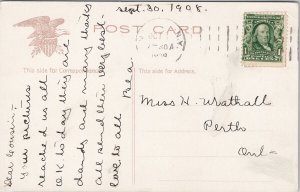 Sept. 30, 1908.
POST CARD
This side for Correspondence
This side for Address
Dear Cousin:-
Your pictures
reached us all
OK to day they are
dandy and many thanks
all send their very best
love to all
Bea.
Miss H. Wathall
Perth
Ont-